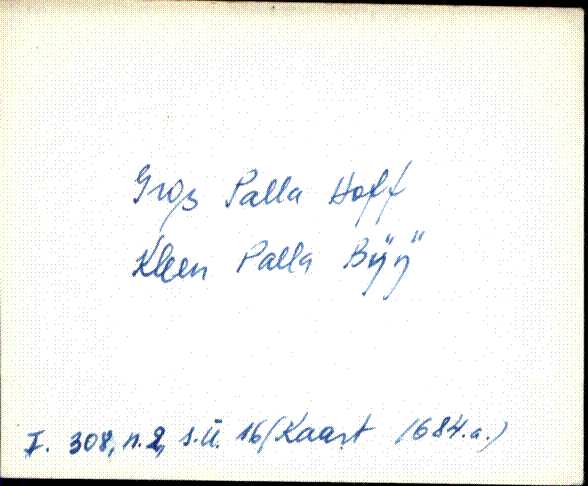 Groß Palla Hoff
Kleen Palla Bÿÿ
F. 308, n. 2, s.ü. 16 (Kaart 1684.a.)